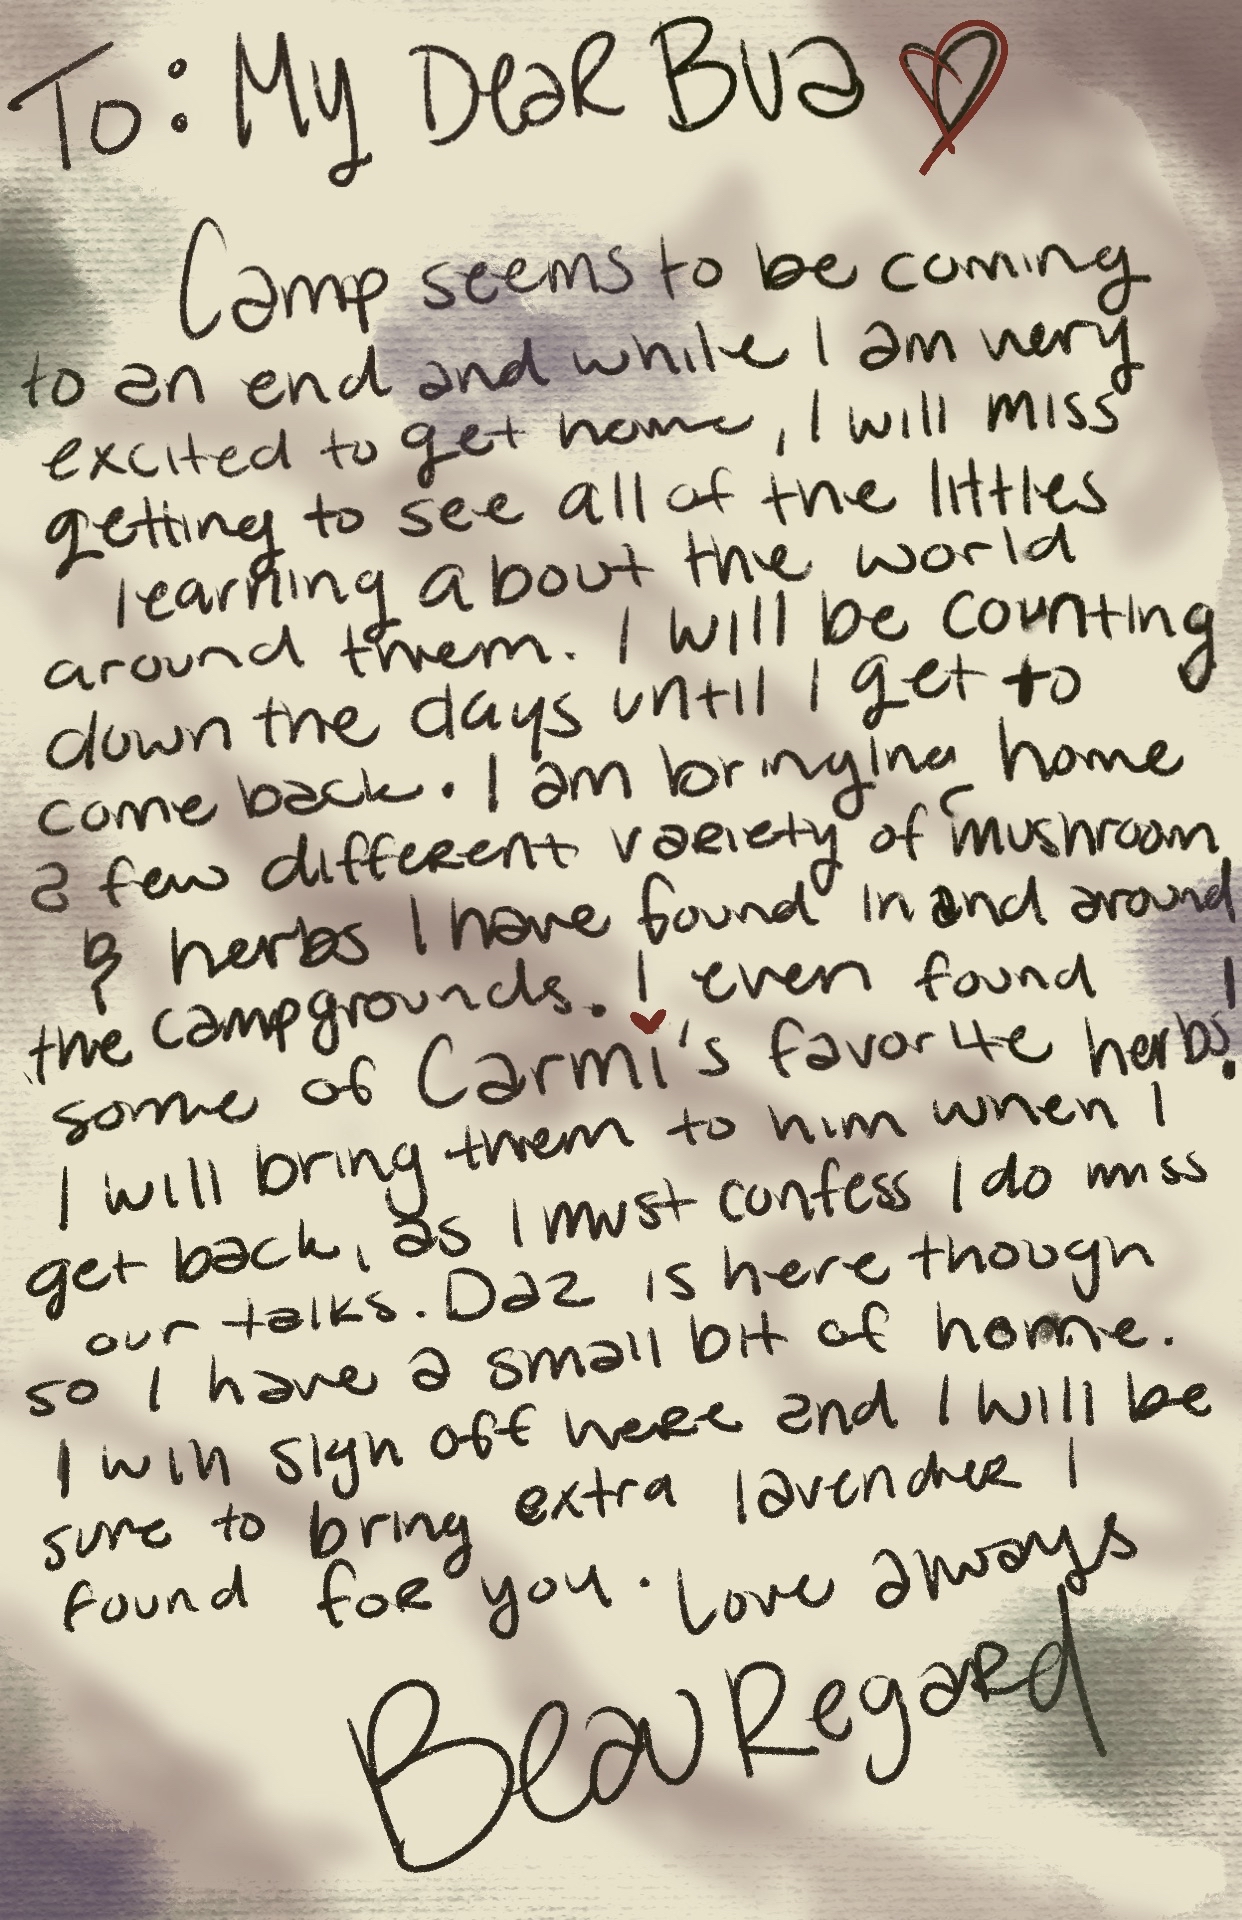 To: My Dear Bua
Camp seems to be coming
to an end and while I am very
excited to get home, I will miss
getting to see all of the littles
learning about the world
around them. I will be counting
down the days until I get to
come back. I am bringing home
a few different variety of mushroom
& herbs I have found in and around
the campgrounds. I even found
some of Carmi's favorite herbs!
I will bring them to him when I
get back, as I must confess I do miss
our talks. Daz is here though
so I have a small bit of home.
I will sign off here and I will be
sure to bring extra lavender I
found for you. Love always
BeauRegard